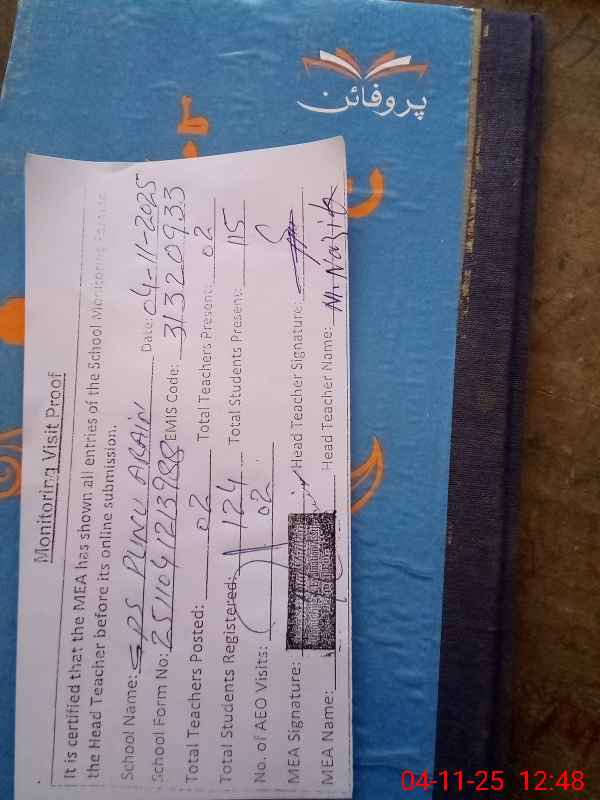 پروفائن
Monitoring Visit Proof
It is certified that the MEA has shown all entries of the School Monitoring
the Head Teacher before its online submission.
School Name: GPS PUNU ARAIN Date: 04-11-2025
School Form No: 251104121398 EMIS Code: 31320933
Total Teachers Posted: 02 Total Teachers Present: 02
Total Students Registered: 124 Total Students Present: 115
No. of AEO Visits: 02
MEA Signature: Head Teacher Signature:
MEA Name: Head Teacher Name: M. Nazik
04-11-25 12:48